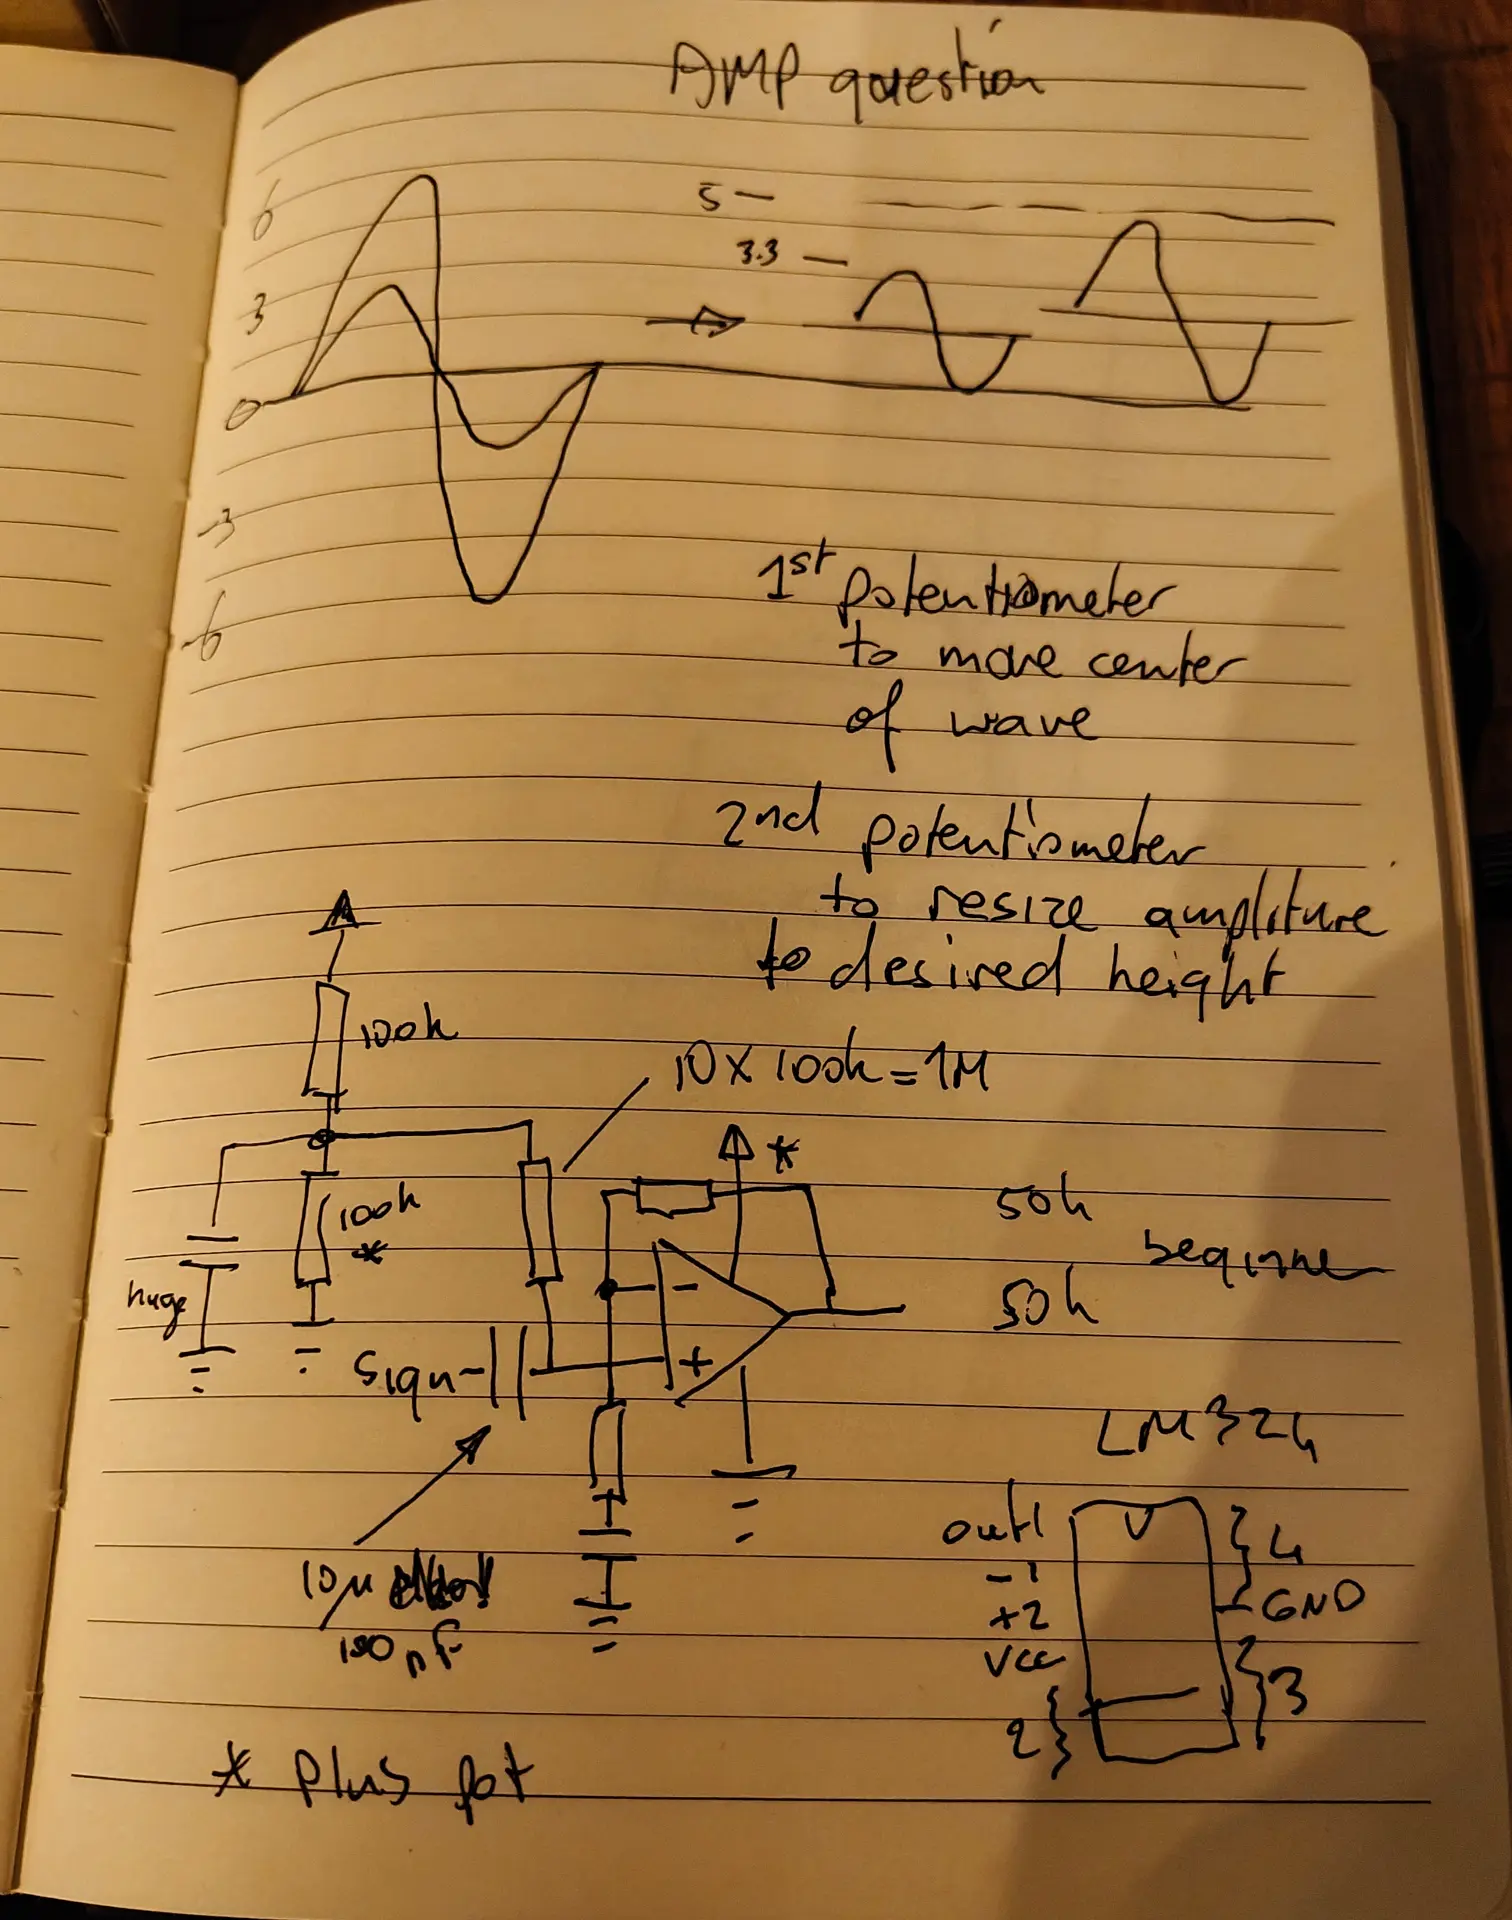 AMP question
6
3
0
-3
-6
5 —
3.3 —
1st potentiometer
to move center
of wave
2nd potentiometer
to resize ampliture
to desired height
100k
10 x 100k = 1M
*
100k
*
huge
50k
50k
-
+
Sign
10µ
100nF
LM324
out1
-1
+2
Vcc
2
4
GND
3
* Plus pot